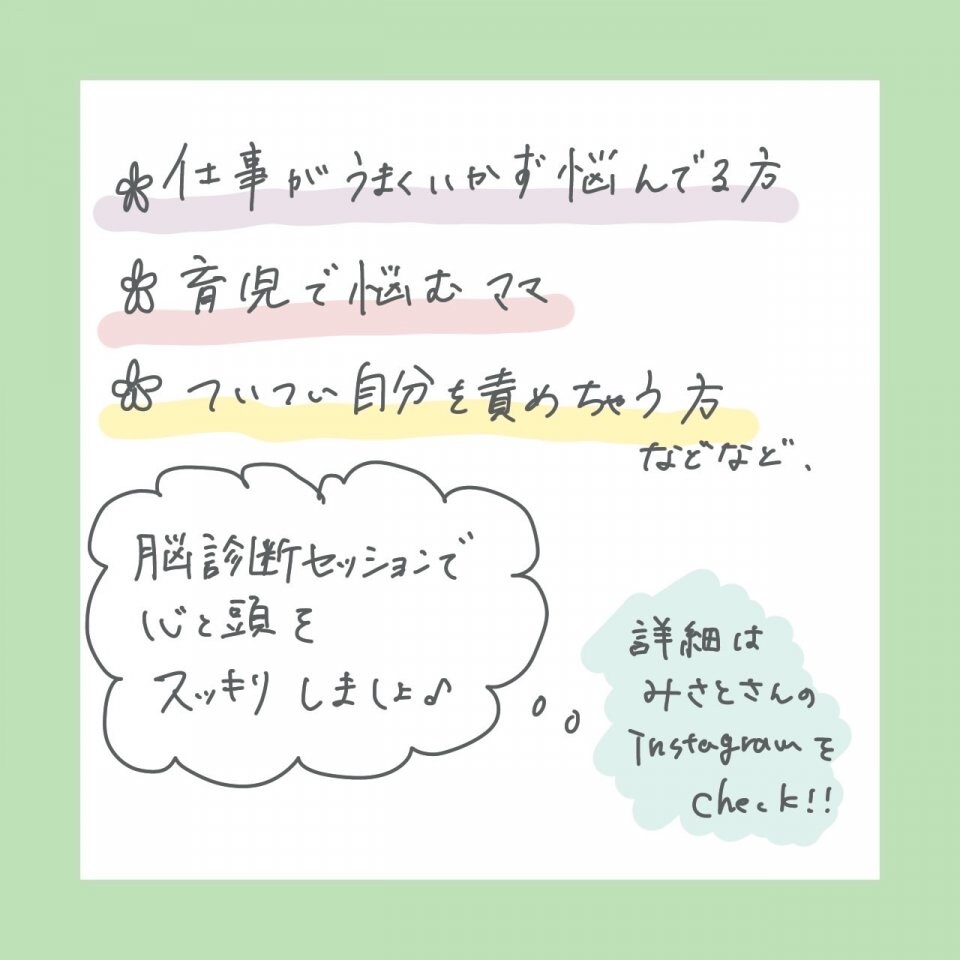 仕事がうまくいかず悩んでる方
育児で悩むママ
ついつい自分を責めちゃう方
などなど、
脳診断セッションで
心と頭を
スッキリしましょ♪
詳細は
みさとさんの
Instagramを
check!!